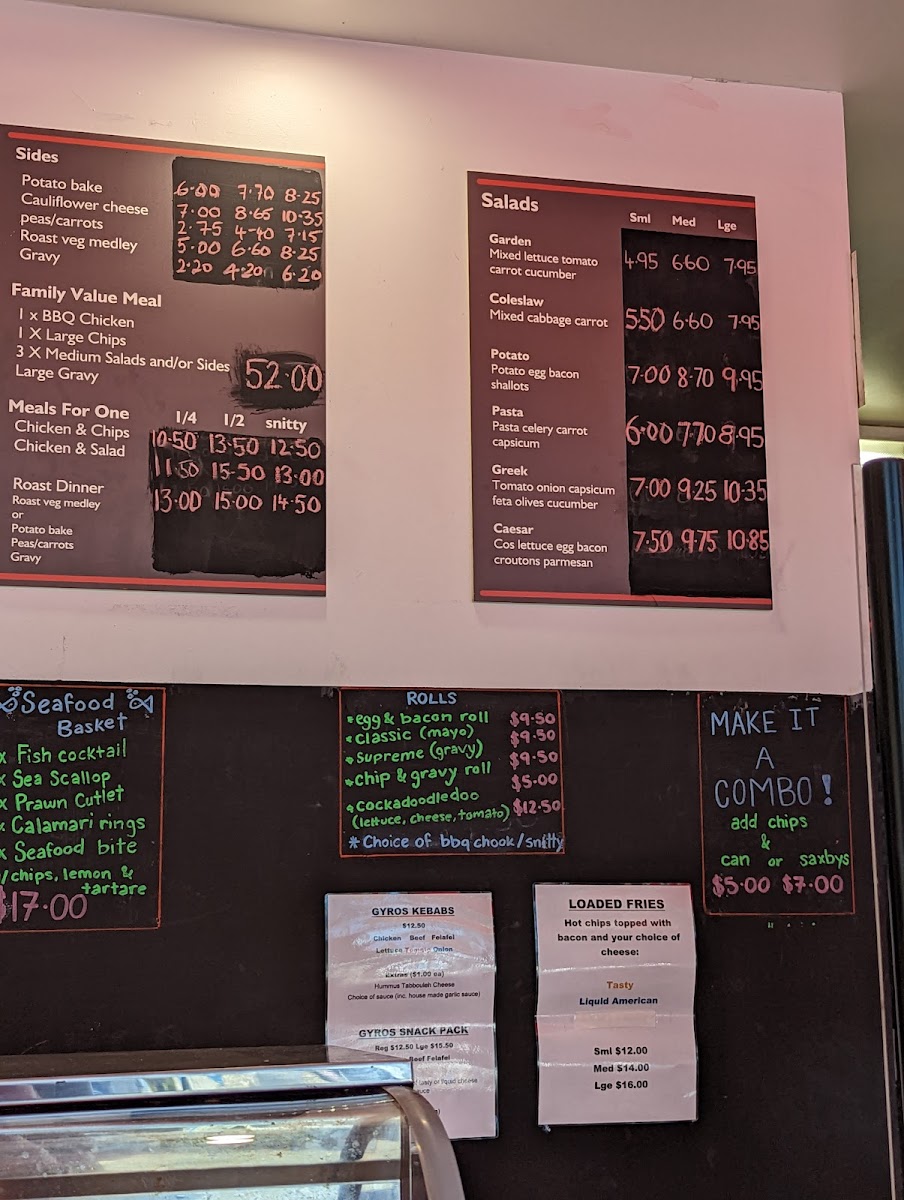 Sides
Potato bake 6.00 7.70 8.25
Cauliflower cheese 7.00 8.65 10.35
peas/carrots 2.75 4.40 7.15
Roast veg medley 5.00 6.60 8.25
Gravy 2.20 4.20 6.20
Family Value Meal
1 x BBQ Chicken
1 X Large Chips
3 X Medium Salads and/or Sides
Large Gravy
52.00
Meals For One 1/4 1/2 snitty
Chicken & Chips 10.50 13.50 12.50
Chicken & Salad 11.50 15.50 13.00
Roast Dinner 13.00 15.00 14.50
Roast veg medley
or
Potato bake
Peas/carrots
Gravy
Salads Sml Med Lge
Garden
Mixed lettuce tomato 4.95 6.60 7.95
carrot cucumber
Coleslaw
Mixed cabbage carrot 5.50 6.60 7.95
Potato
Potato egg bacon 7.00 8.70 9.95
shallots
Pasta
Pasta celery carrot 6.00 7.70 8.95
capsicum
Greek
Tomato onion capsicum 7.00 9.25 10.35
feta olives cucumber
Caesar
Cos lettuce egg bacon 7.50 9.75 10.85
croutons parmesan
Seafood
Basket
x Fish cocktail
x Sea Scallop
x Prawn Cutlet
x Calamari rings
x Seafood bite
/chips, lemon &
tartare
$17.00
ROLLS
*egg & bacon roll $9.50
*classic (mayo) $9.50
*supreme (gravy) $9.50
*chip & gravy roll $5.00
*cockadoodledoo
(lettuce, cheese, tomato) $12.50
* Choice of bbq chook/snitty
MAKE IT
A
COMBO!
add chips
&
can or saxbys
$5.00 $7.00
GYROS KEBABS
$12.50
Chicken Beef Felafel
Lettuce Tomato Onion
Extras ($1.00 ea)
Hummus Tabbouleh Cheese
Choice of sauce (inc. house made garlic sauce)
GYROS SNACK PACK
Reg $12.50 Lge $15.50
Beef Felafel
tasty or liquid cheese
LOADED FRIES
Hot chips topped with
bacon and your choice of
cheese:
Tasty
Liquid American
Sml $12.00
Med $14.00
Lge $16.00